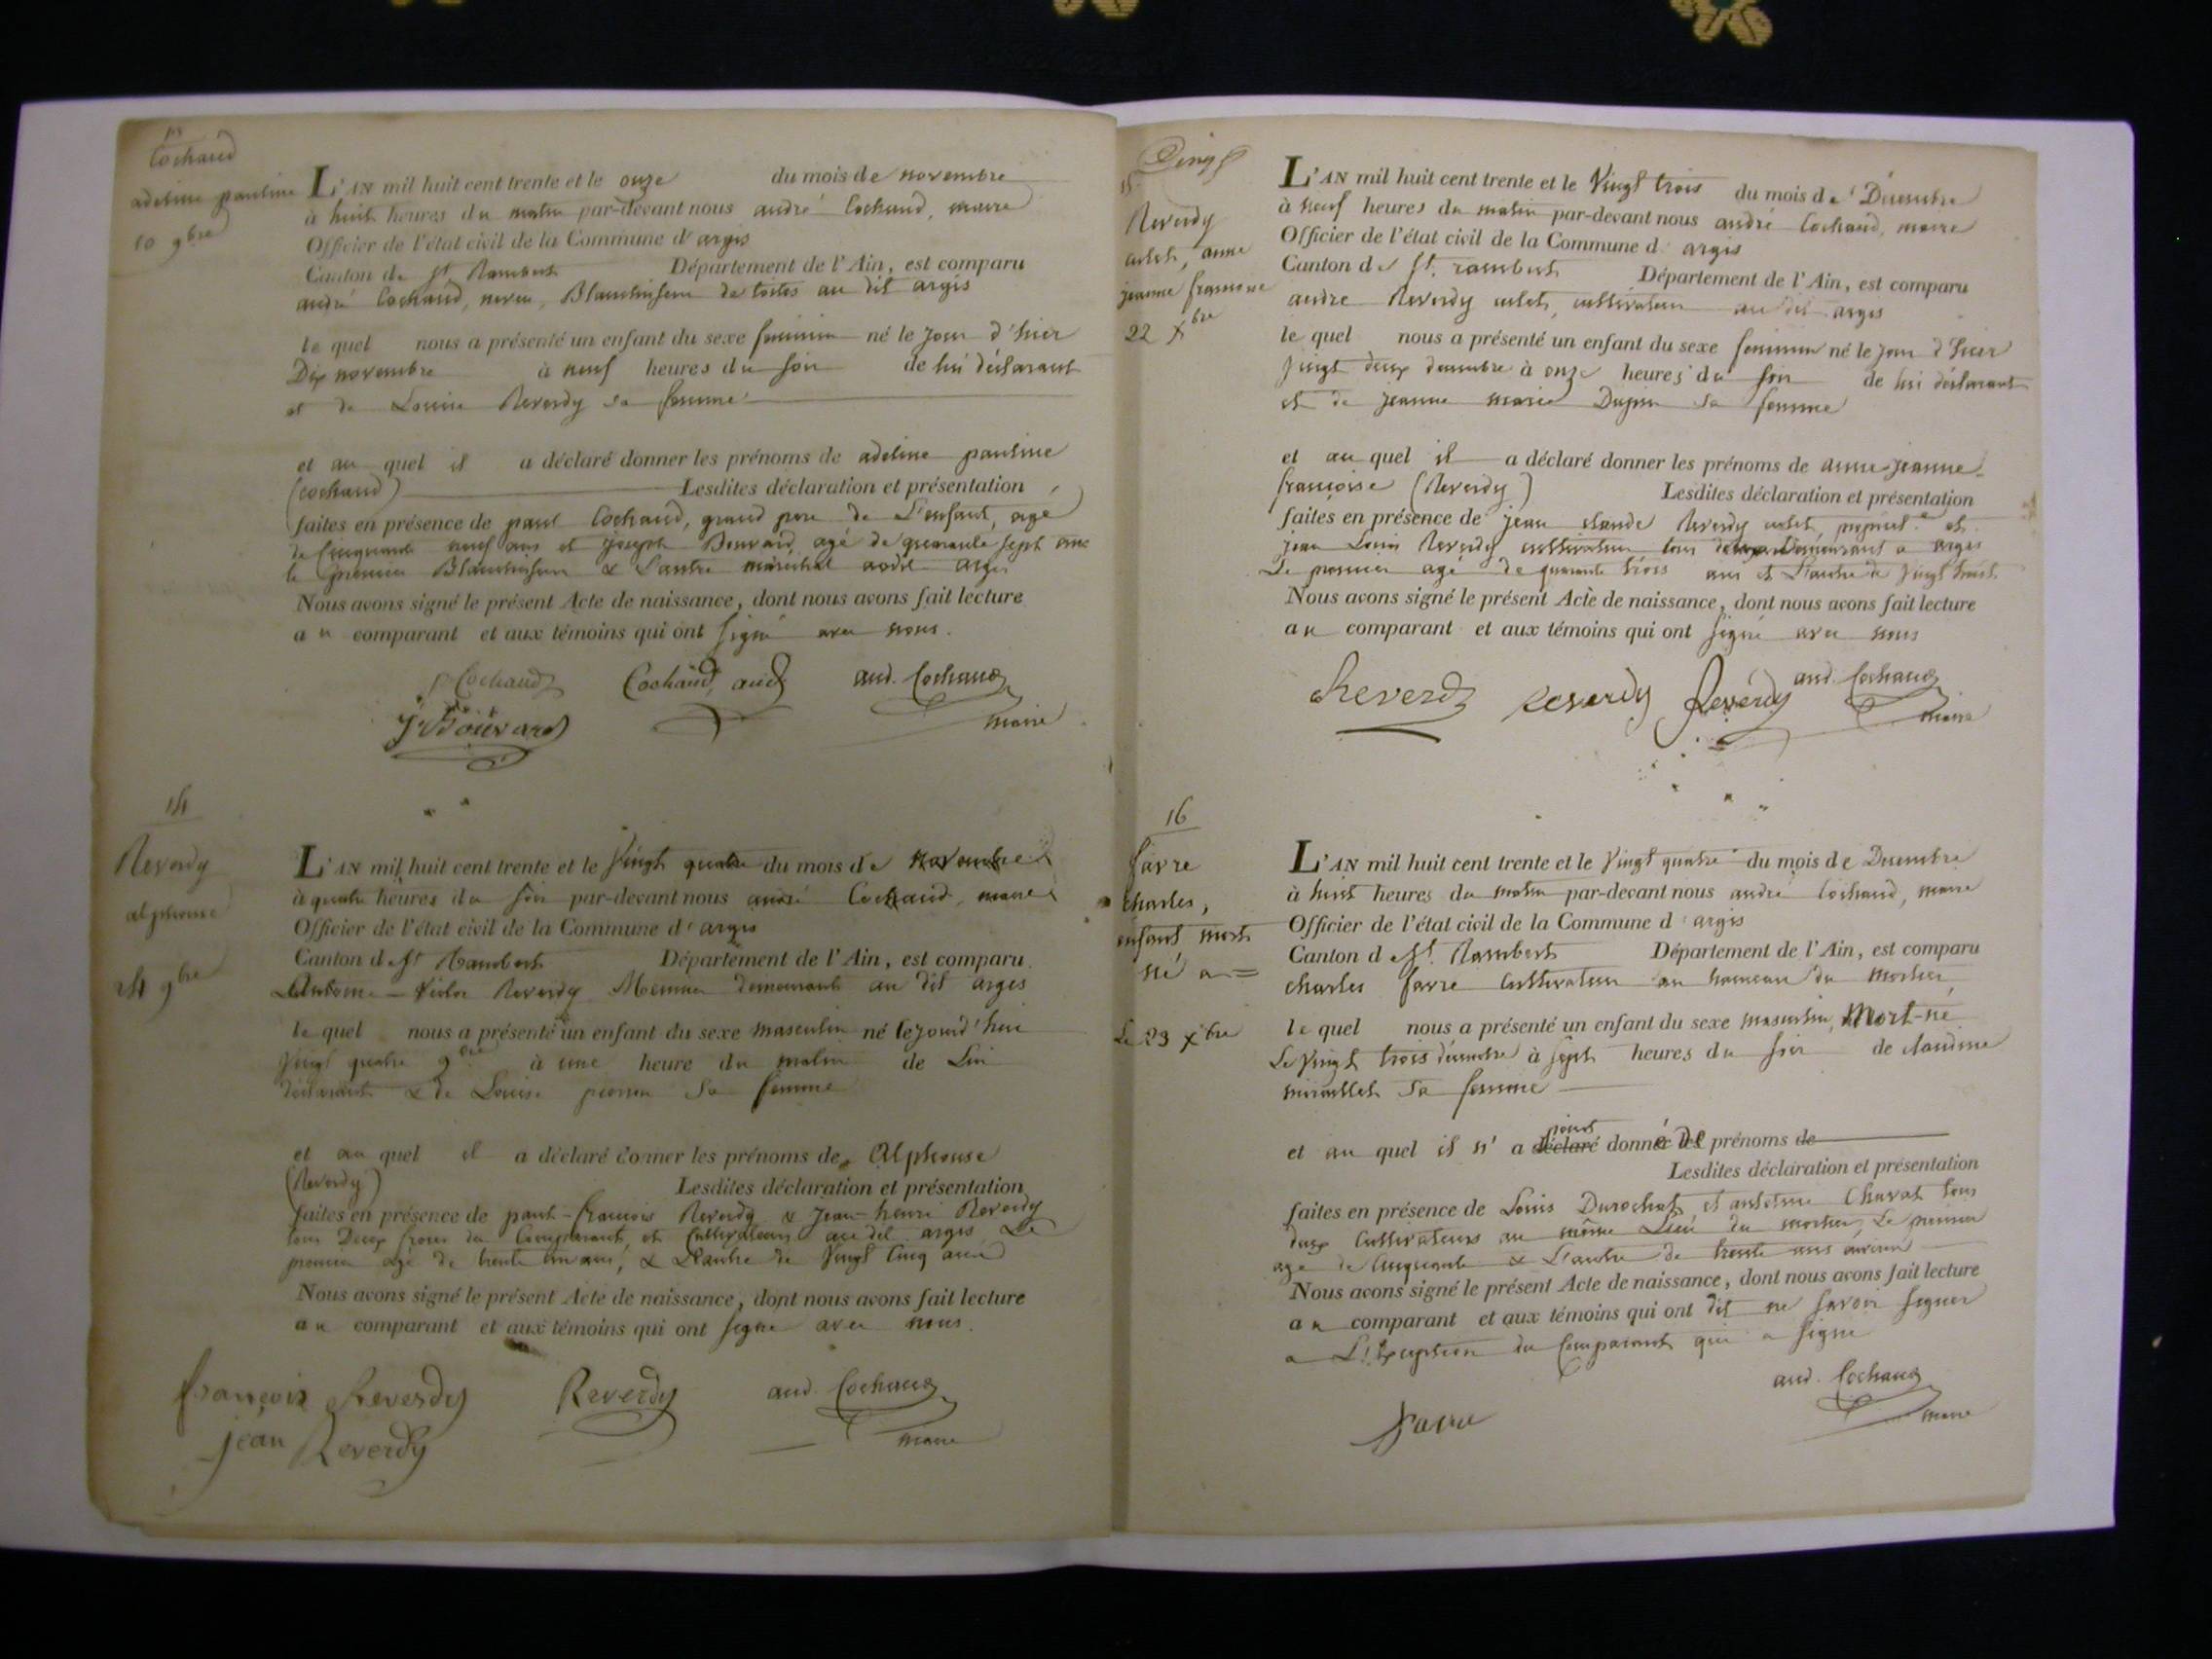 13
Cochaud
adeline pauline
10 9bre
L'AN mil huit cent trente et le onze du mois de novembre
à huit heures du matin par-devant nous andré Cochaud, maire
Officier de l'état civil de la Commune d'argis
Canton de St. Rambert Département de l'Ain, est comparu
andré Cochaud, neveu, Blanchisseur de toiles au dit argis
le quel nous a présenté un enfant du sexe feminin né le jour d'hier
Dix novembre à neuf heures du soir de lui déclarant
et de Louise Reverdy sa femme
et au quel il a déclaré donner les prénoms de adeline pauline
(cochaud) Lesdites déclaration et présentation
faites en présence de paul Cochaud, grand pere de L'enfant, agé
de Cinquante neuf ans et joseph Bouvard, agé de quarante sept ans
le premier Blanchisseur & L'autre maréchal audit argis
Nous avons signé le présent Acte de naissance, dont nous avons fait lecture
au comparant et aux témoins qui ont signé avec nous.
p Cochaud Cochaud, aud. and. Cochaud
J Bouvard maire
14
Reverdy
alphonse
24 9bre
L'AN mil huit cent trente et le Vingt quatre du mois de Novembre
à quatre heures du soir par-devant nous andré Cochaud, maire
Officier de l'état civil de la Commune d'argis
Canton de St Rambert Département de l'Ain, est comparu
Antoine-Victor Reverdy Meunier demeurant au dit argis
le quel nous a présenté un enfant du sexe masculin né lejourd'hui
Vingt quatre 9bre à une heure du matin de Lui
déclarant & de Louise sa femme
et au quel il a déclaré donner les prénoms de Alphonse
(Reverdy) Lesdites déclaration et présentation
faites en présence de paul-françois Reverdy & jean-henri Reverdy
tous Deux freres du Comparant, et Cultivateurs audit argis Le
premier agé de trente ans, & L'autre de Vingt Cinq ans
Nous avons signé le présent Acte de naissance, dont nous avons fait lecture
au comparant et aux témoins qui ont signé avec nous.
françois Reverdy Reverdy and. Cochaud
jean Reverdy maire
15
Reverdy
anne
jeanne francoise
22 Xbre
L'AN mil huit cent trente et le Vingt trois du mois de Décembre
à neuf heures du matin par-devant nous andré Cochaud, maire
Officier de l'état civil de la Commune d'argis
Canton de St. rambert Département de l'Ain, est comparu
andre Reverdy cultivateur au dit argis
le quel nous a présenté un enfant du sexe feminin né le jour d'hier
Vingt deux decembre à onze heures du soir de lui déclarant
et de jeanne marie Dupin sa femme
et au quel il a déclaré donner les prénoms de anne jeanne
françoise (Reverdy) Lesdites déclaration et présentation
faites en présence de jean claude Reverdy et
jean Louis Reverdy cultivateur tous deux demeurant a argis
Le premier agé de quarante trois ans et L'autre de Vingt huit
Nous avons signé le présent Acte de naissance, dont nous avons fait lecture
au comparant et aux témoins qui ont signé avec nous
Reverdy Reverdy Reverdy and. Cochaud
maire
16
favre
charles,
enfant mort
né a =
Le 23 Xbre
L'AN mil huit cent trente et le Vingt quatre du mois de Decembre
à huit heures du matin par-devant nous andré Cochaud, maire
Officier de l'état civil de la Commune d'argis
Canton de St. Rambert Département de l'Ain, est comparu
charles favre Cultivateur au hameau du mortier,
le quel nous a présenté un enfant du sexe masculin, Mort-né
Le Vingt trois décembre à sept heures du soir de claudine
sa femme
et au quel il n'a point déclaré donné de prénoms de
Lesdites déclaration et présentation
faites en présence de Louis Durochat, et antoine Charat tous
deux Cultivateurs au même Lieu du mortier, Le premier
agé de Cinquante & L'autre de trente ans environ
Nous avons signé le présent Acte de naissance, dont nous avons fait lecture
au comparant et aux témoins qui ont dit ne savoir signer
a L'Exception du Comparant qui a signé
and. Cochaud
favre maire